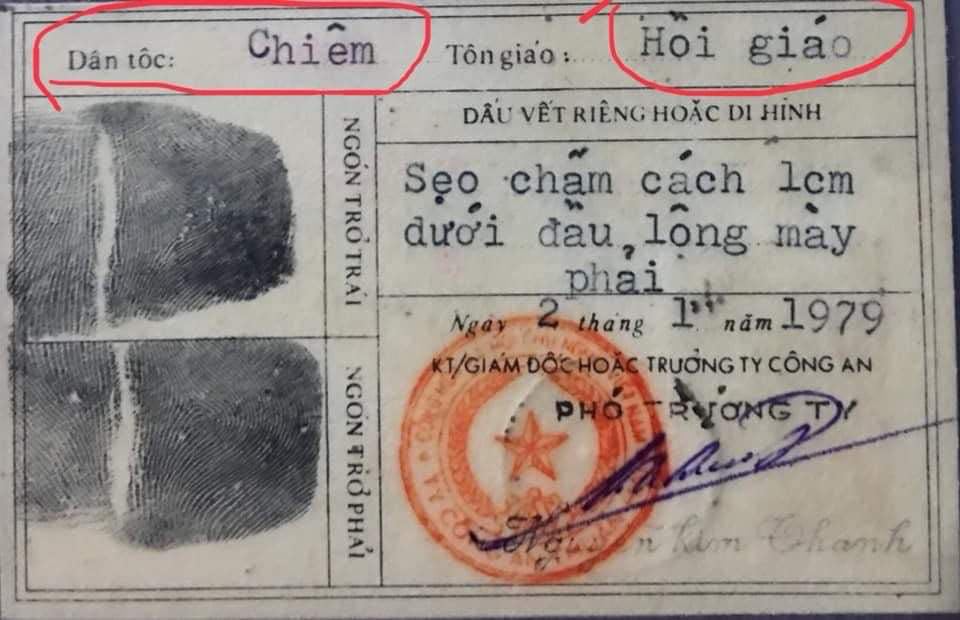 Dân tộc: Chiêm Tôn giáo: Hồi giáo
DẤU VẾT RIÊNG HOẶC DỊ HÌNH
NGÓN TRỎ TRÁI
Sẹo chấm cách 1cm
dưới đầu lông mày
phải
Ngày 2 tháng 1 năm 1979
KT/GIÁM ĐỐC HOẶC TRƯỞNG TY CÔNG AN
PHÓ TRƯỞNG TY
NGÓN TRỎ PHẢI
Nguyễn Kim Thanh